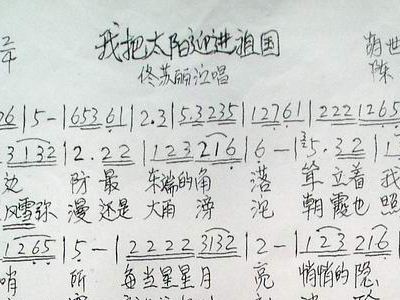 2/4 我把太阳迎进祖国 胡世
佟苏丽江唱 陈
26|5-|653 61|2.3|5.3235|12761|222 1265
3 3132|2.22|123 216|6-|5.32|1
边 防最 东端的角 落 耸立着 我
风雪弥 漫还是 大雨 滂 沱 朝霞也 照
1265|5-|2222 3132|2-|123 216
哨 所 每当星星月 亮 悄悄的隐